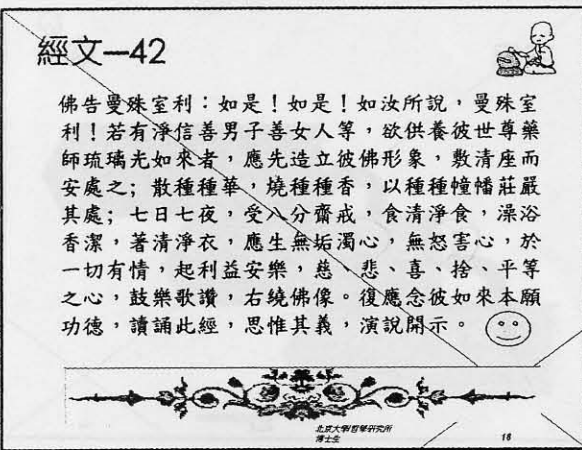 經文—42
佛告曼殊室利：如是！如是！如汝所說，曼殊室
利！若有淨信善男子善女人等，欲供養彼世尊藥
師琉璃光如來者，應先造立彼佛形象，敷清座而
安處之；散種種華，燒種種香，以種種幢幡莊嚴
其處；七日七夜，受八分齋戒，食清淨食，澡浴
香潔，著清淨衣，應生無垢濁心，無怒害心，於
一切有情，起利益安樂，慈、悲、喜、捨、平等
之心，鼓樂歌讚，右繞佛像。復應念彼如來本願
功德，讀誦此經，思惟其義，演說開示。
北京大學哲學研究所
博士生
18